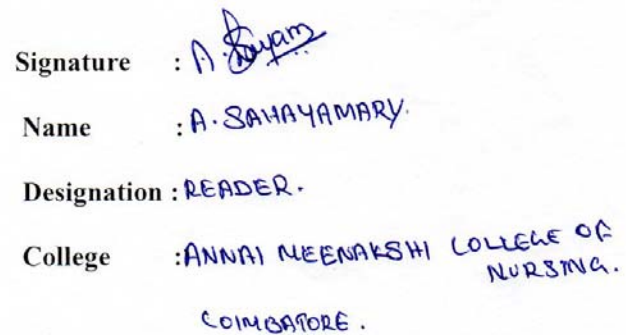 Signature : A.
Name : A. SAHAYAMARY.
Designation : READER.
College : ANNAI MEENAKSHI COLLEGE OF
NURSING.
COIMBATORE.